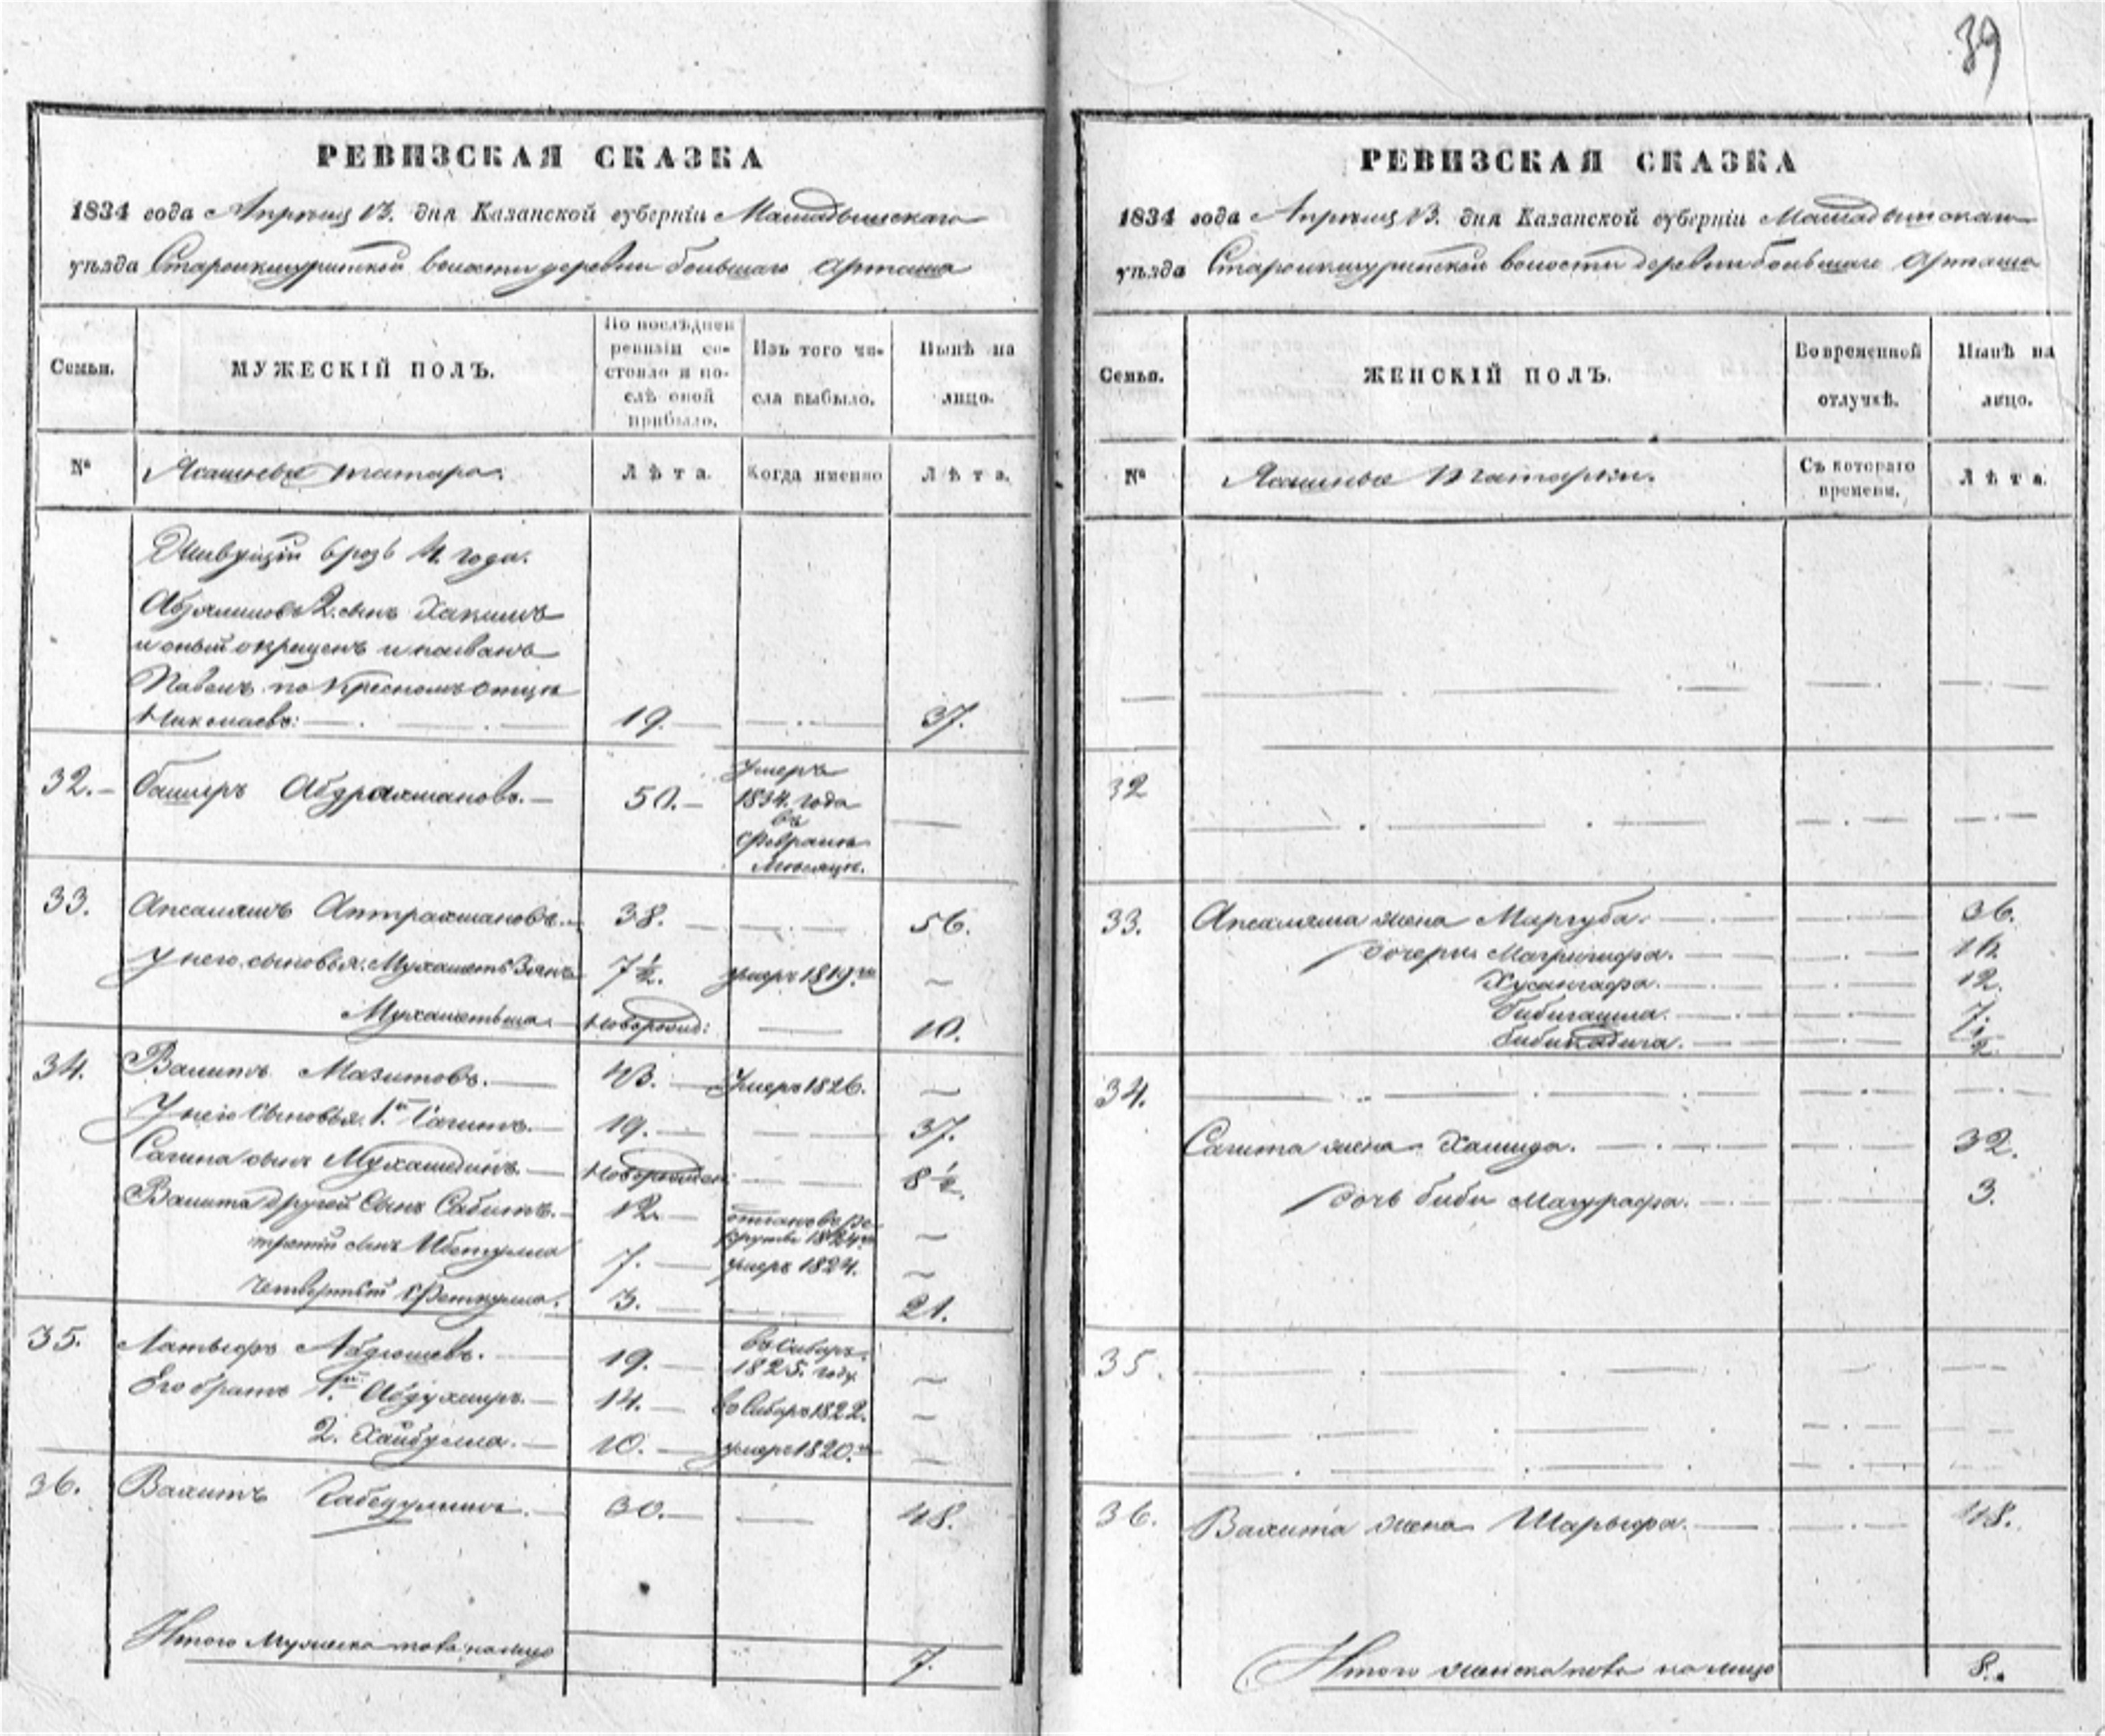 39
РЕВИЗСКАЯ СКАЗКА
1834 года Апреля 13. дня Казанской губерніи Мамадышскаго
уѣзда Староикшурминской волости деревни большаго Арташа
Семьи.
МУЖЕСКІЙ ПОЛЪ.
По послѣдней ревизіи состояло и послѣ оной прибыло.
Изъ того числа выбыло.
Нынѣ на лицо.
№
Ясашные татара.
Лѣта.
Когда именно
Лѣта.
Живущій врозь 4. года.
Абдрахмановъ 2. сынъ Хакимъ
и оный окрещенъ и названъ
Павелъ по Крестномъ отцѣ
Николаевъ: 19. 37.
32. Башеръ Абдрахмановъ. 50. Умеръ
1834. года
въ
Февралѣ
Мѣсяцѣ.
33. Апсалямъ Аптрахмановъ. 38. 56.
У него сыновья: Мухаметь Зянъ 7½. умеръ 1819го
Мухаметьша. Новорожд: 10.
34. Валитъ Мазитовъ. 43. Умеръ 1826.
У него сыновья. 1.й Сагитъ. 19. 37.
Сагита сынъ Мухамединъ. Новорожден: 8½.
Валита другой сынъ Сабитъ. 12. отданъ въ ре-
круты 1824го
третій сынъ Ибетулла 7. умеръ 1824.
четвертый Феткулла. 3. 21.
35. Латыфъ Абдюшевъ. 19. въ Сибирь.
1825. году.
Его братъ 1.й Абдухаиръ. 14. въ Сибирь 1822.
2. Хайбулла. 10. умеръ 1820.го
36. Вахитъ Габедуллинъ. 30. 48.
Итого Мужеска пола на лицо 7.
РЕВИЗСКАЯ СКАЗКА
1834 года Апреля 13. дня Казанской губерніи Мамадышскаго
уѣзда Староикшурминской волости деревни большаго Арташа
Семьи.
ЖЕНСКІЙ ПОЛЪ.
Во временной отлучкѣ.
Нынѣ на лицо.
№
Ясашные Татарки.
Съ котораго времени.
Лѣта.
32
33. Апсаляма жена Маргуба. 36.
дочери Магрифа. 14.
Хусангафа. 12.
Бибигаиша. 7.
Бибихадича. ½.
34.
Сагита жена Хамида. 32.
дочь биби Магруфа. 3.
35.
36. Вахита жена Шарыфа. 48.
Итого женска пола на лицо 8.